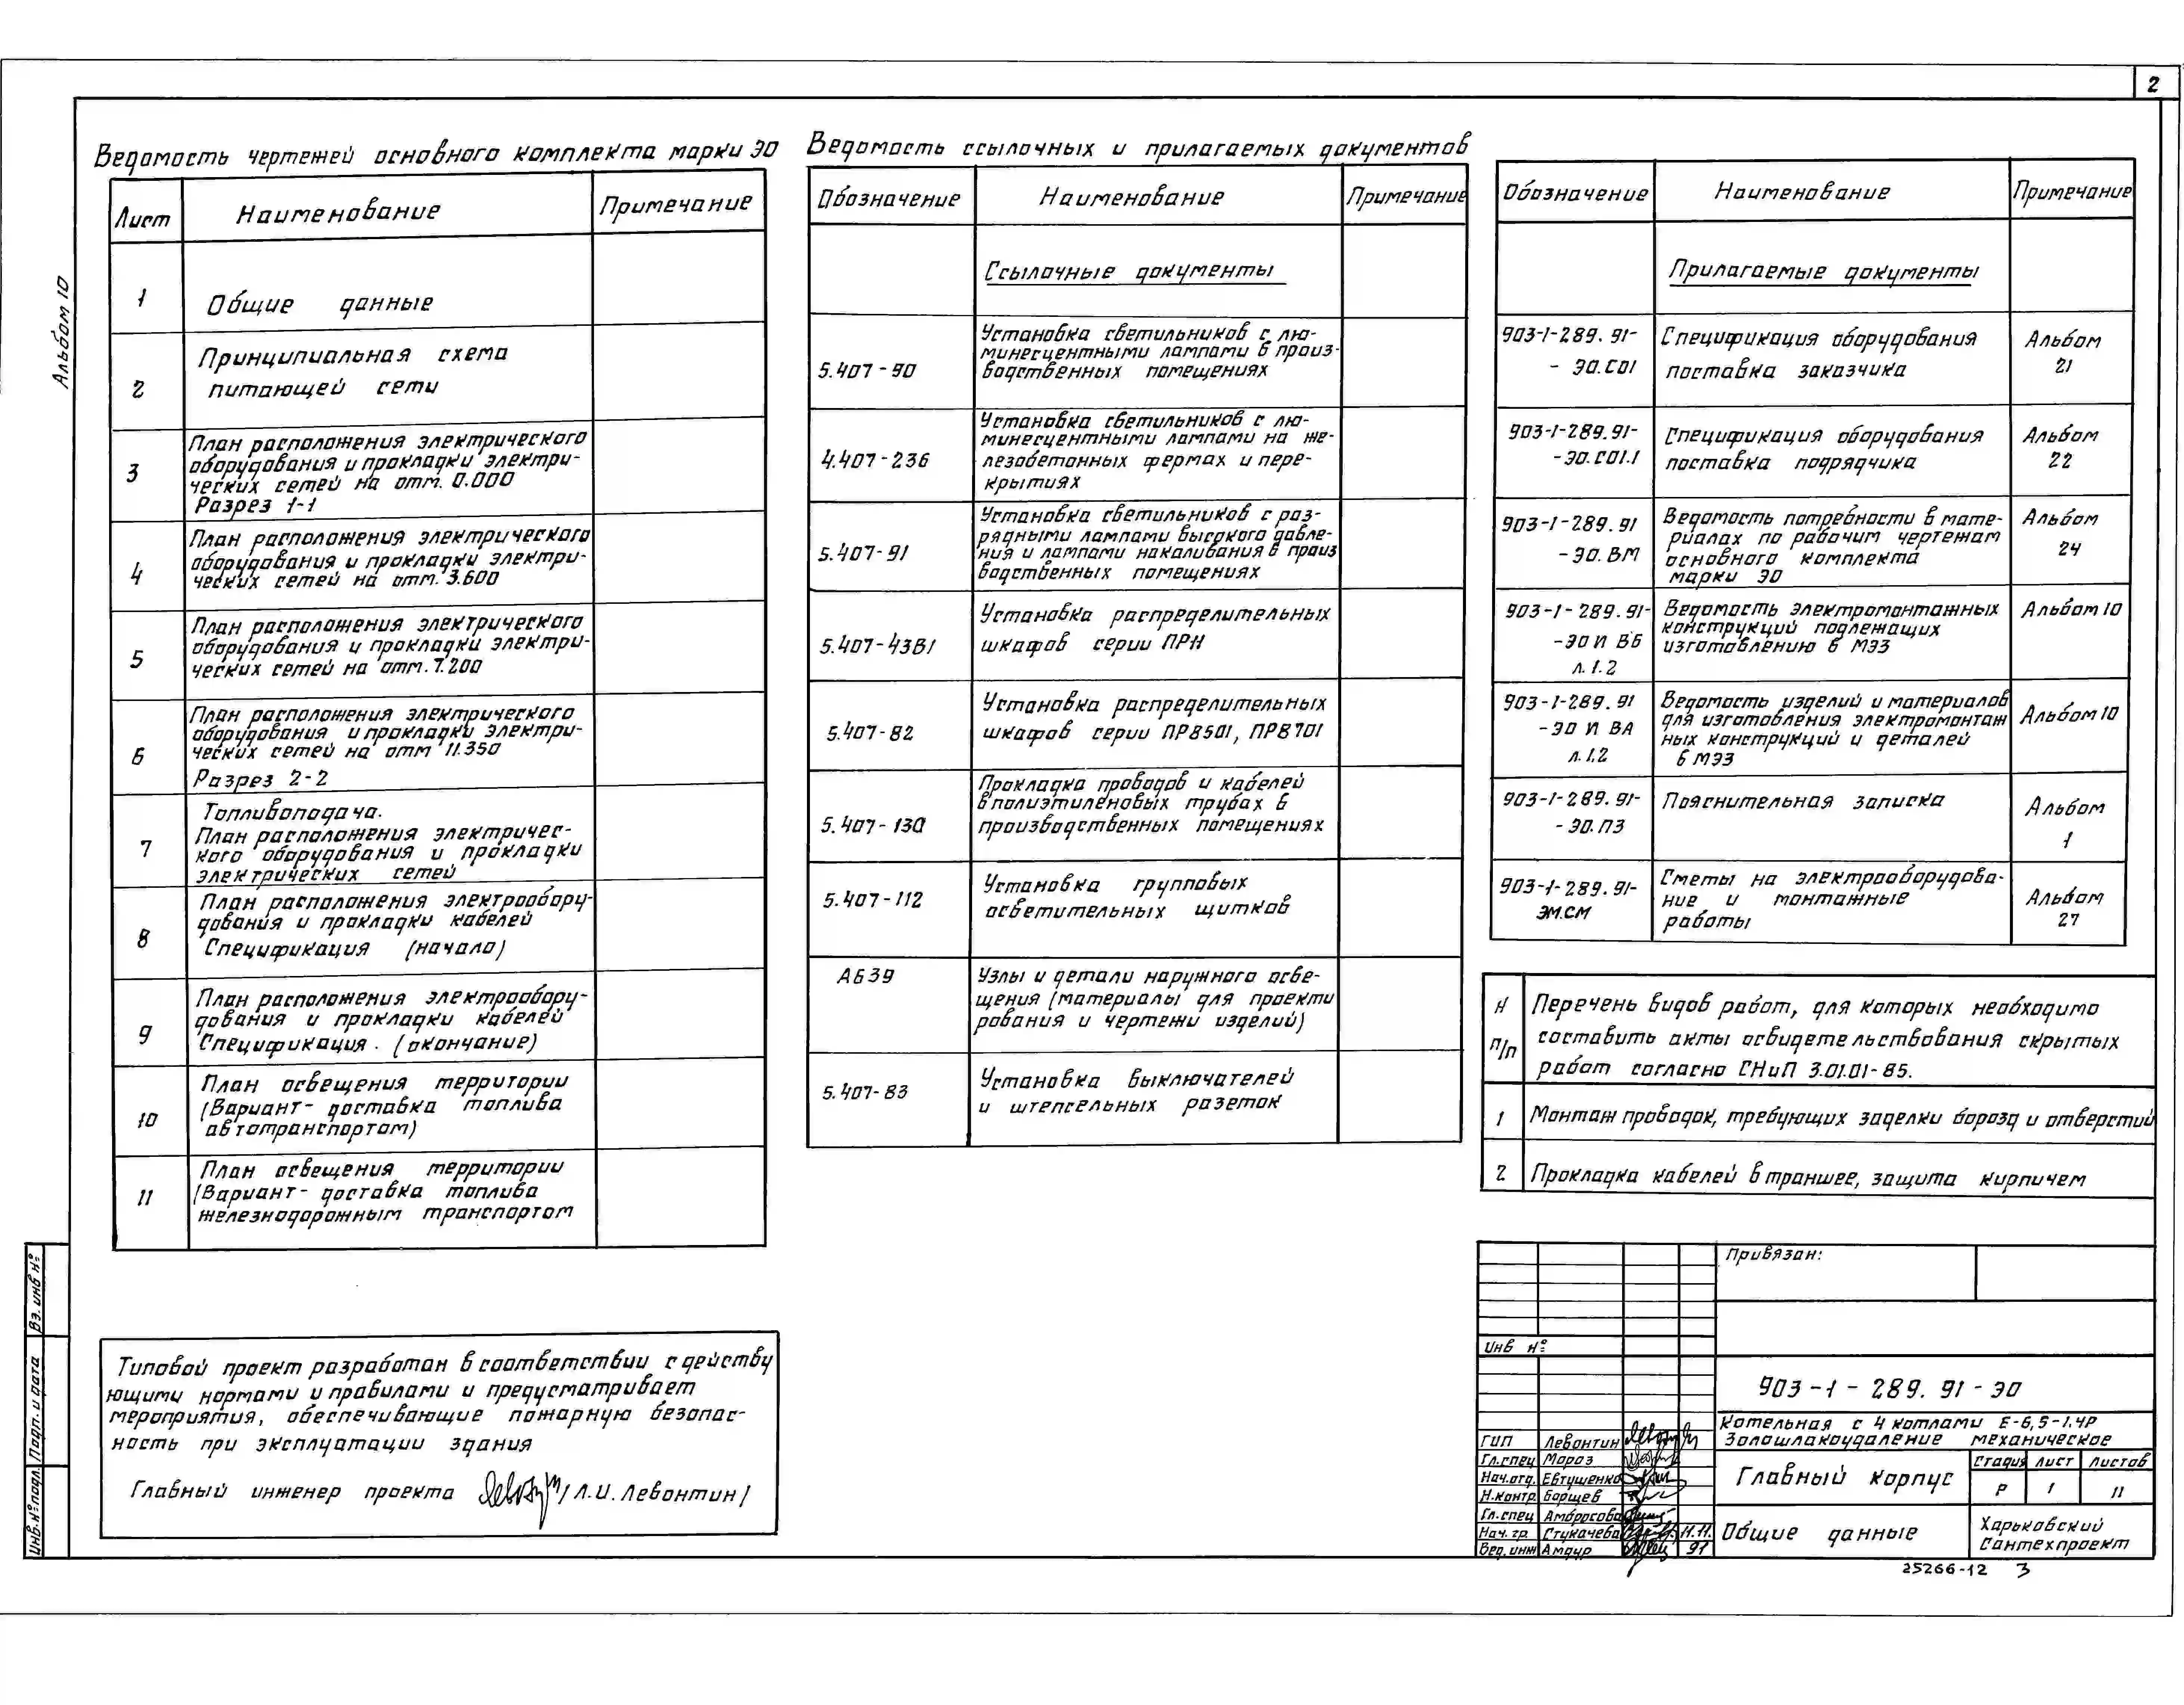 2
Альбом 10
Ведомость чертежей основного комплекта марки ЭО
Лист Наименование Примечание
1 Общие данные
2 Принципиальная схема
питающей сети
3 План расположения электрического
оборудования и прокладки электри-
ческих сетей на отм. 0.000
Разрез 1-1
4 План расположения электрического
оборудования и прокладки электри-
ческих сетей на отм. 3.600
5 План расположения электрического
оборудования и прокладки электри-
ческих сетей на отм. 7.200
6 План расположения электрического
оборудования и прокладки электри-
ческих сетей на отм 11.350
Разрез 2-2
7 Топливоподача.
План расположения электричес-
кого оборудования и прокладки
электрических сетей
8 План расположения электрообору-
дования и прокладки кабелей
Спецификация (начало)
9 План расположения электрообору-
дования и прокладки кабелей
Спецификация. (окончание)
10 План освещения территории
(Вариант- доставка топлива
автотранспортом)
11 План освещения территории
(Вариант- доставка топлива
железнодорожным транспортом
Ведомость ссылочных и прилагаемых документов
Обозначение Наименование Примечание
Ссылочные документы
5.407-90 Установка светильников с лю-
минесцентными лампами в произ-
водственных помещениях
4.407-236 Установка светильников с лю-
минесцентными лампами на же-
лезобетонных фермах и пере-
крытиях
5.407-91 Установка светильников с раз-
рядными лампами высокого давле-
ния и лампами накаливания в произ
водственных помещениях
5.407-43В1 Установка распределительных
шкафов серии ПРН
5.407-82 Установка распределительных
шкафов серии ПР8501, ПР8701
5.407-130 Прокладка проводов и кабелей
в полиэтиленовых трубах в
производственных помещениях
5.407-112 Установка групповых
осветительных щитков
А639 Узлы и детали наружного осве-
щения (материалы для проекти
рования и чертежи изделий)
5.407-83 Установка выключателей
и штепсельных разеток
Обозначение Наименование Примечание
Прилагаемые документы
903-1-289.91- Спецификация оборудования Альбом
- ЭО.СО1 поставка заказчика 21
903-1-289.91- Спецификация оборудования Альбом
-ЭО.СО1.1 поставка подрядчика 22
903-1-289.91 Ведомость потребности в мате- Альбом
-ЭО.ВМ риалах по рабочим чертежам 24
основного комплекта
марки ЭО
903-1-289.91- Ведомость электромонтажных Альбом 10
-ЭО И ВБ конструкций подлежащих
л.1.2 изготовлению в МЭЗ
903-1-289.91 Ведомость изделий и материалов Альбом 10
-ЭО И ВА для изготовления электромонтаж
л.1,2 ных конструкций и деталей
в МЭЗ
903-1-289.91- Пояснительная записка Альбом
-ЭО.ПЗ 1
903-1-289.91- Сметы на электрооборудова- Альбом
ЭМ.СМ ние и монтажные 27
работы
N п/п Перечень видов работ, для которых необходимо
составить акты освидетельствования скрытых
работ согласно СНиП 3.01.01-85.
1 Монтаж проводок, требующих заделки борозд и отверстий
2 Прокладка кабелей в траншее, защита кирпичем
Типовой проект разработан в соответствии с действу
ющими нормами и правилами и предусматривает
мероприятия, обеспечивающие пожарную безопас-
ность при эксплуатации здания
Главный инженер проекта /Л.И.Левонтин/
Вз. инв №
Подп. и дата
Инв.№ подл.
Привязан:
Инв №
903-1-289.91-ЭО
Котельная с 4 котлами Е-6,5-1.4Р
Золошлакоудаление механическое
ГИП Левонтин
Гл.спец Мороз
Нач.отд. Евтушенко
Н.контр. Борщев
Гл.спец Амбросова
Нач. гр. Стукачева 11.11.
Вед. инж Амдур 91
Главный корпус
Стадия Лист Листов
Р 1 11
Общие данные
Харьковский
Сантехпроект
25266-12 3